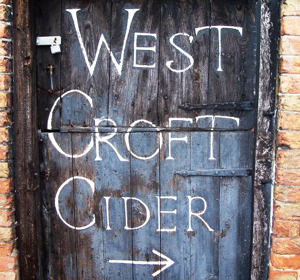 WEST
CROFT
CIDER